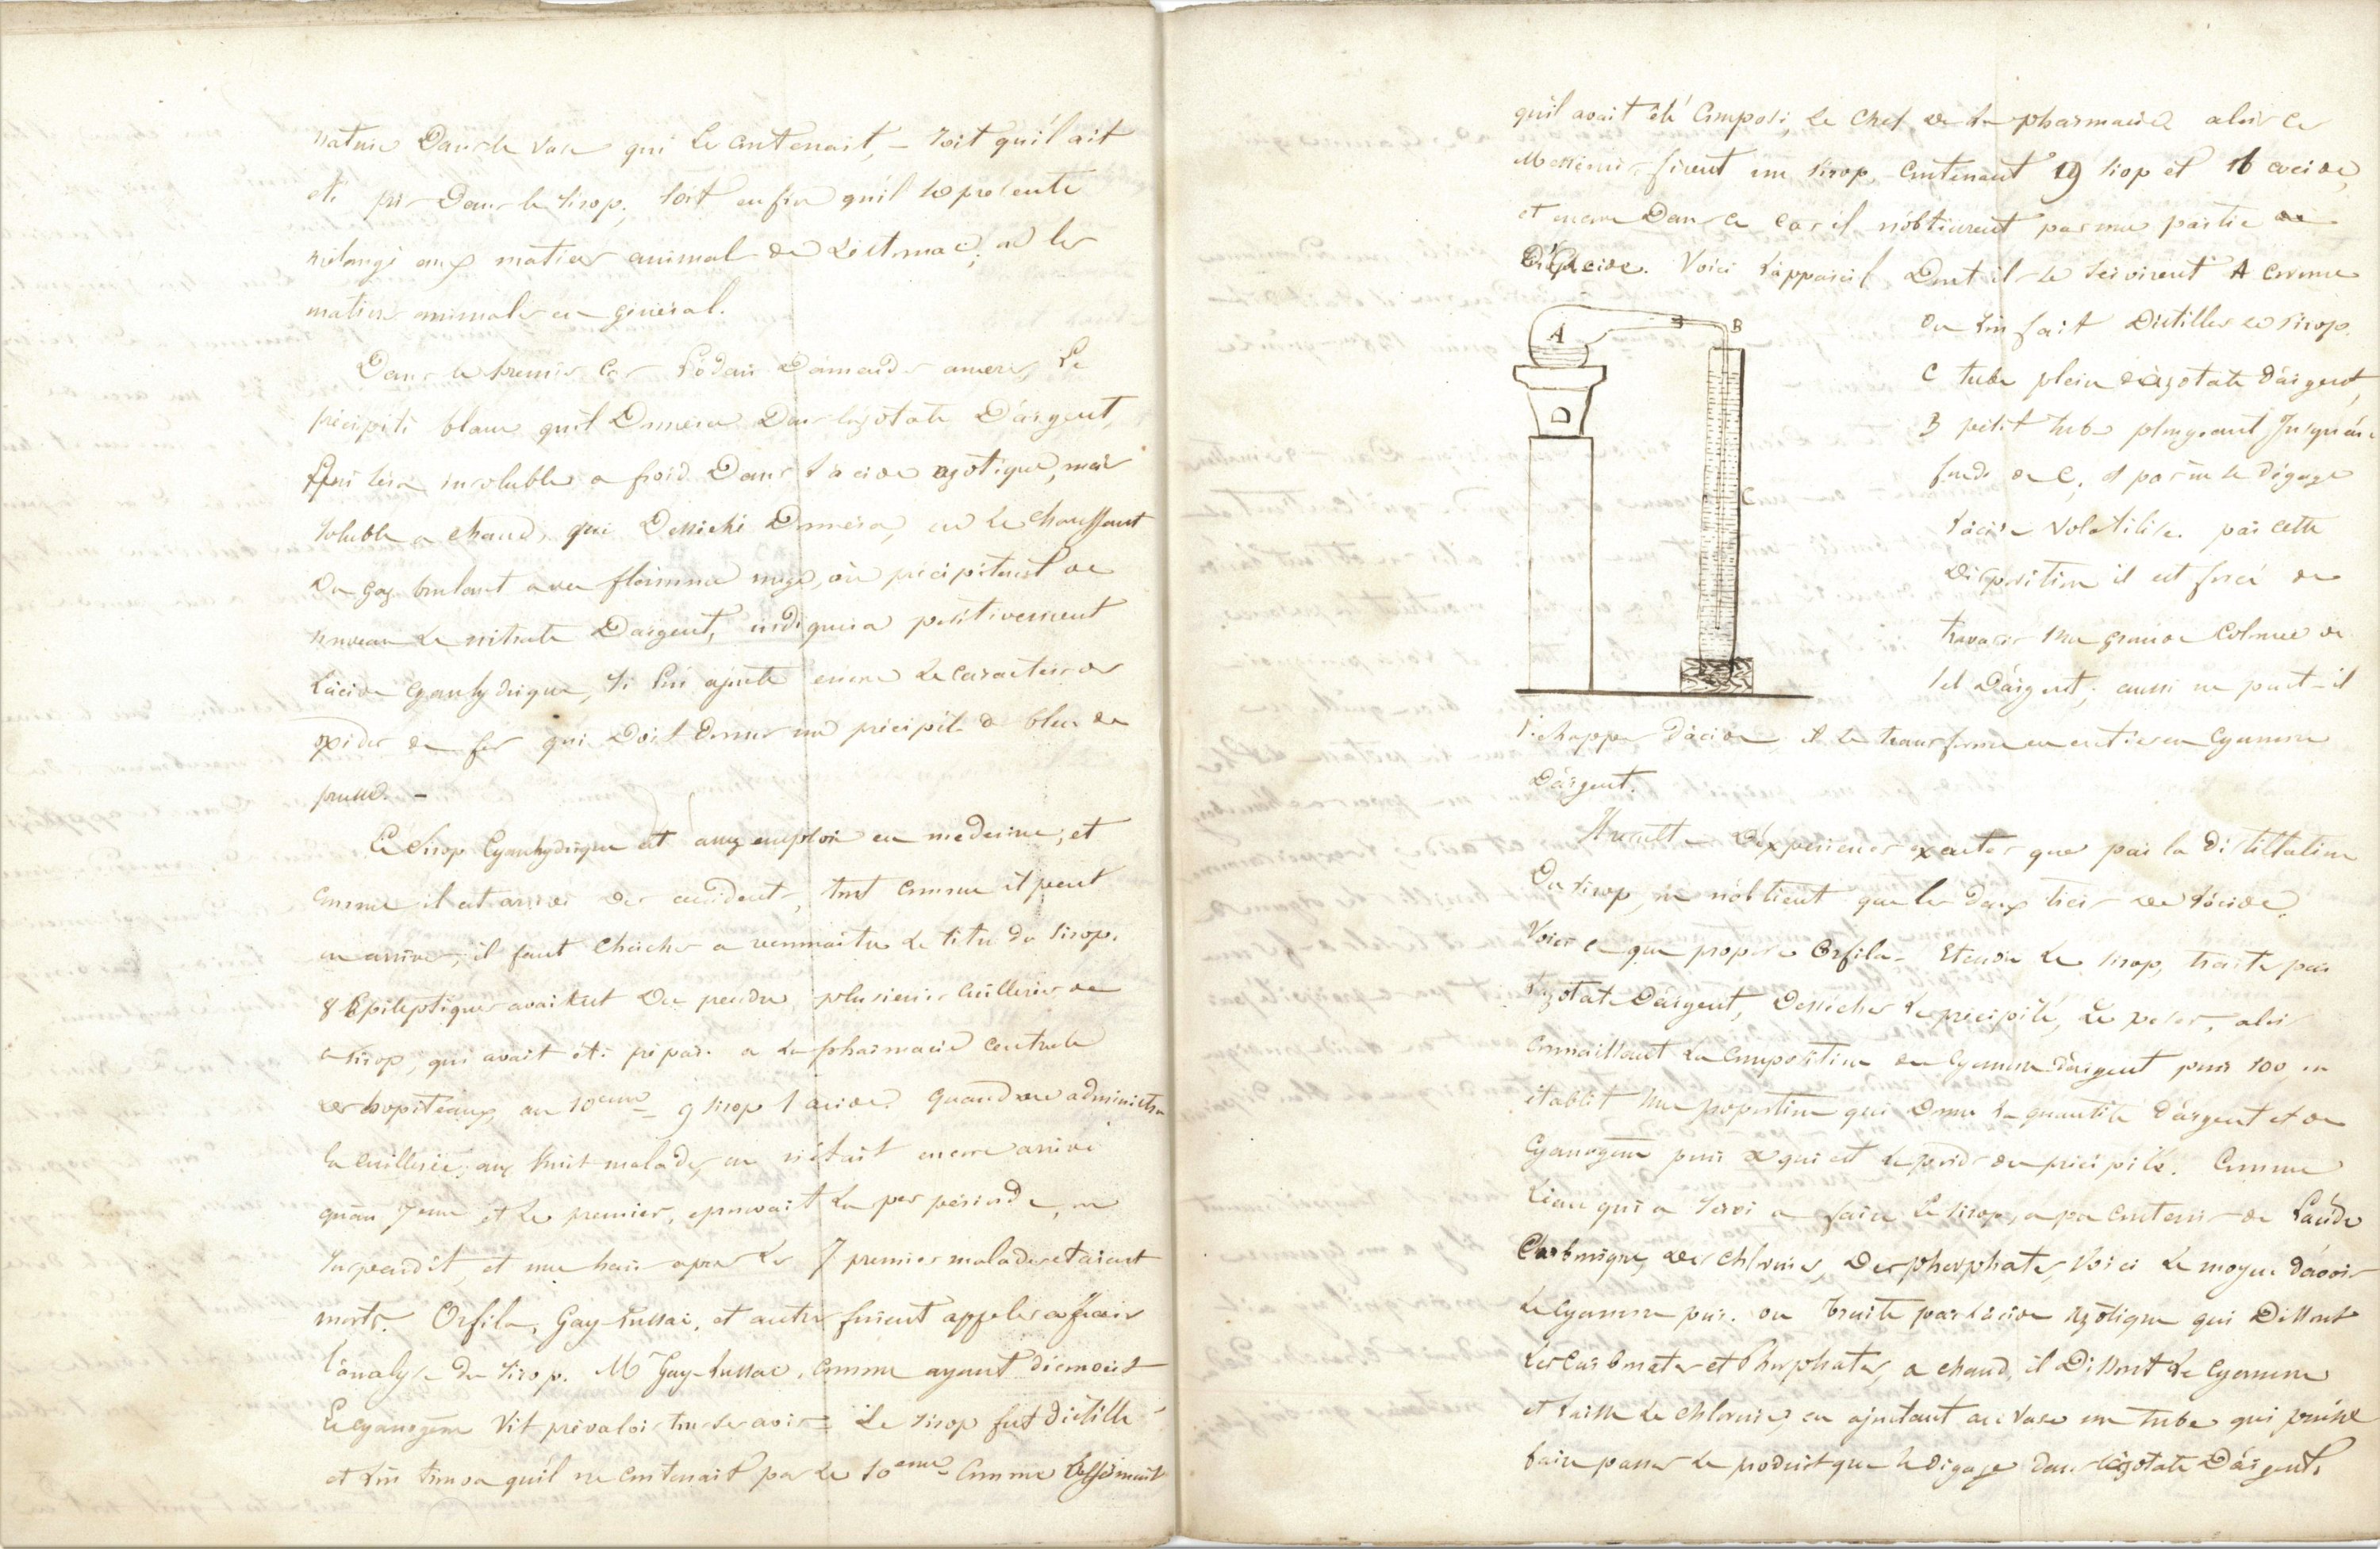 nature Dans le vase qui le contenait, – soit qu'il ait
eté pris Dans le sirop; soit enfin qu'il se presente
melangé aux matieres animal de l'estomac; ou les
matieres animales en général.
Dans le premier Cas l'odeur D'amandes ameres, Le
précipité blanc qu'il Donnera Dans l'azotate D'argent,
qui sera insoluble a froid Dans l'acide azotique, mais
soluble a chaud, qui Desséché Donnera, en le chauffant
Du gaz brulant avec flamme rouge, où précipitant de
nouveau le nitrate D'argent, indiquera positivement
L'acide Cyanhydrique, si l'on ajoute encore le caractere des
oxides de fer qui Doit Donner un précipité de bleu de
prusse. –
Le Sirop Cyanhydrique est assez employé en medecine; et
comme il est arrivé des accidents, tout comme il peut
en arriver, il faut Chercher a reconnaitre le titre du Sirop.
8 Epileptiques avaient Du prendre plusieurs Cuillerées de
ce sirop, qui avait été préparé a la pharmacie Centrale
des hopiteaux, au 10eme – 9 sirop 1 acide. quand on administra
la cuillerée; aux huit malades, on n'était encore arrivé
qu'au 7eme et le premier, eprouvait la 1er periode, on
suspendit, et une heure apres les 7 premiers malades etaient
morts. Orfila, Gay-Lussac, et autres furent appeles a faire
l'analyse du Sirop. Mr Gay-Lussac, comme ayant découvert
Le Cyanogene Vit prévaloir son savoir – Le sirop fut distillé
et l'on trouva qu'il ne contenait pas le 10eme Comme l'affirmait
qu'il avait été Composé, Le Chef de la pharmacie alors ces
Messieurs firent un sirop, Contenant 19 sirop et 16 acide,
et encore Dans ce cas il n'obtinrent pas une partie de
D'Acide. Voici l'appareil Dont il se servirent A Cornue
ou l'on fait Distiller le sirop.
C tube plein d'azotate D'argent,
B petit tube plongeant Jusqu'au
fond de C; et par ou se dégage
l'acide volatilisé. par cette
Disposition il est forcé de
traverser une grande Colonne de
sel D'argent; aussi ne peut-il
s'échapper d'acide et se transforme en entier en Cyanure
D'argent.
A
B
C
D
Il resulte D'expériences exactes que par la distillation
Du sirop, on n'obtient que les deux tiers de l'acide.
Voici ce que propose Orfila – Etendre le sirop, traiter par
l'azotate D'argent, Dessecher le précipité, Le peser, alors
Connaissant la Composition du Cyanure d'argent pour 100, on
établit une proportion qui Donne la quantité D'argent et de
Cyanogene pour x qui est le poids du precipité. Comme
L'eau qui a servi a faire le sirop, a pu Contenir de l'acide
Carbonique, des Chlorures, Des phosphates, Voici le moyen D'avoir
le Cyanure pur. on traite par l'acide Azotique qui Dissout
Les Carbonates et Phosphates, a chaud, il Dissout le Cyanure
et laisse le Chlorure, en ajoutant au Vase un tube qui puisse
faire passer le produit que se dégage dans l'azotate D'argent,